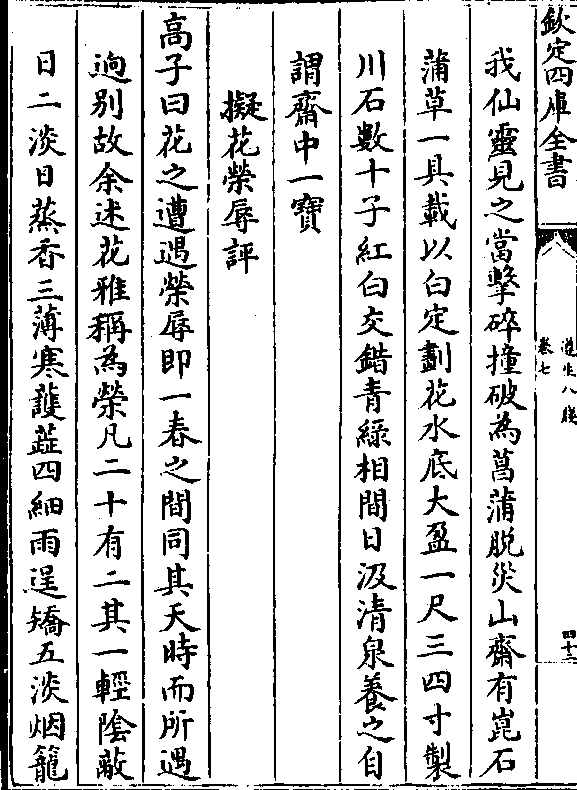 欽定四庫全書
遵生八牋
卷七
四十三
我仙靈見之當擊碎撞破為菖蒲脫災山齋有崑石
蒲草一具載以白定劃花水底大盈一尺三四寸製
川石數十子紅白交錯青綠相間日汲清泉養之自
謂齋中一寶
擬花榮辱評
高子曰花之遭遇榮辱即一春之間同其天時而所遇
逈别故余述花雅稱為榮凡二十有二其一輕隂蔽
日二淡日蒸香三薄寒護蘂四細雨逞嬌五淡烟籠